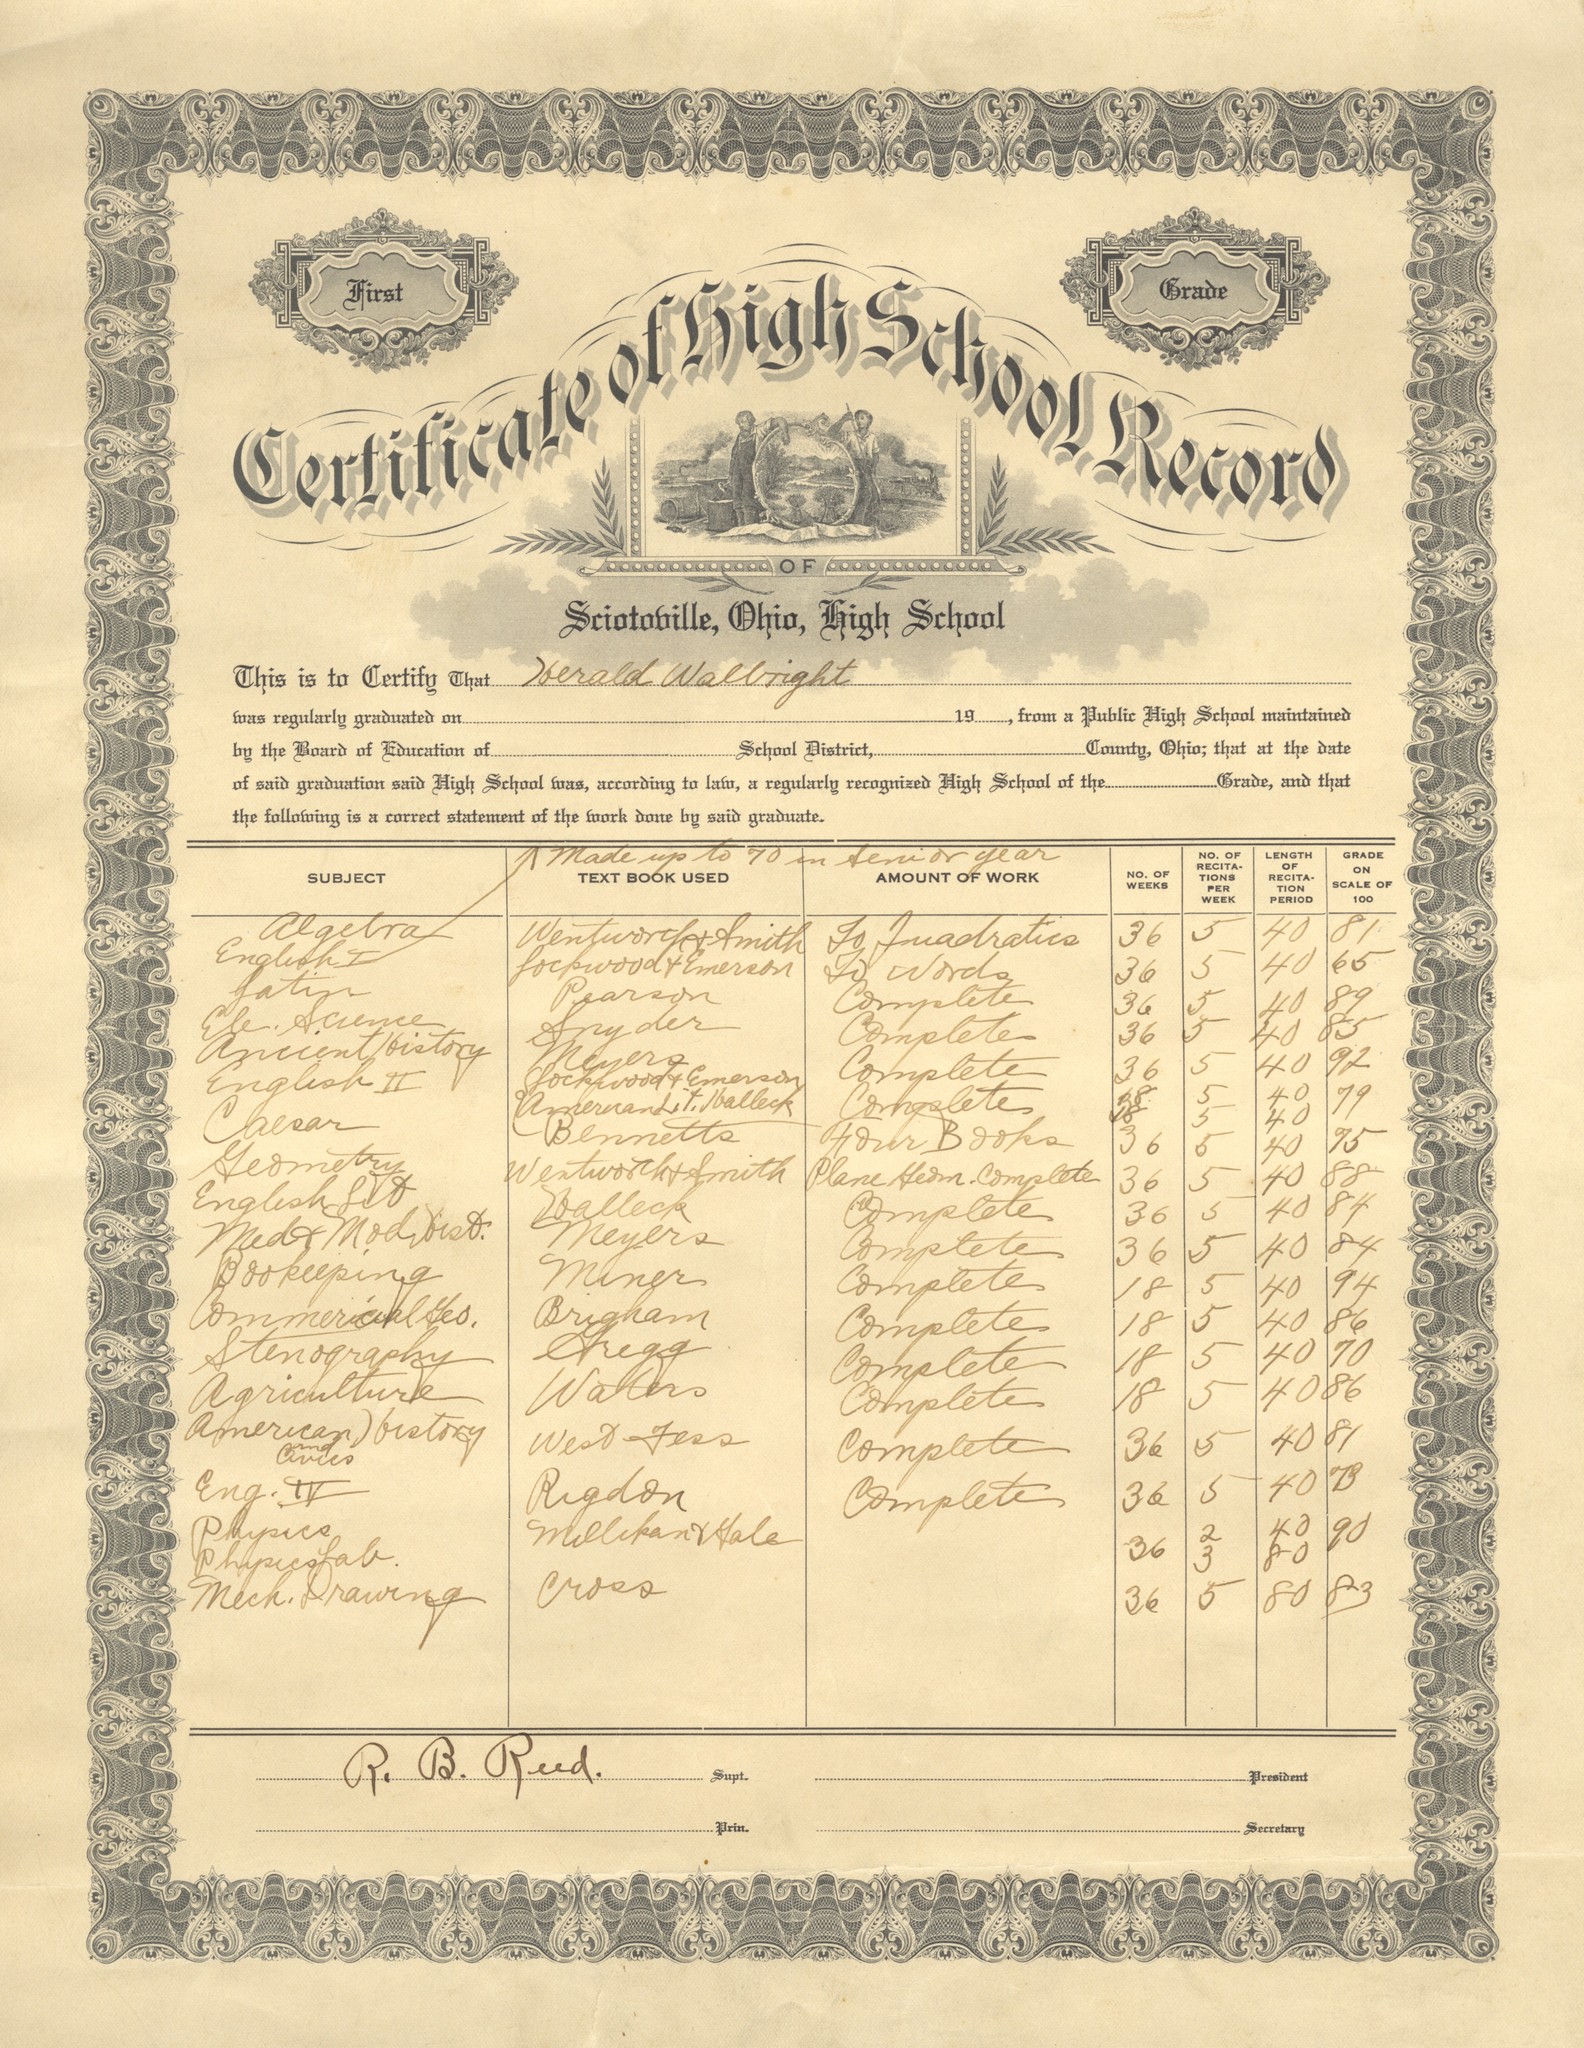 First
Grade
Certificate of High School Record
OF
Sciotoville, Ohio, High School
This is to Certify That Herald Walbright
was regularly graduated on 19 , from a Public High School maintained
by the Board of Education of School District, County, Ohio; that at the date
of said graduation said High School was, according to law, a regularly recognized High School of the Grade, and that
the following is a correct statement of the work done by said graduate.
Made up to 70 in senior year
SUBJECT TEXT BOOK USED AMOUNT OF WORK NO. OF WEEKS NO. OF RECITA- TIONS PER WEEK LENGTH OF RECITA- TION PERIOD GRADE ON SCALE OF 100
Algebra Wentworth & Smith To Quadratics 36 5 40 81
English I Lockwood & Emerson To Words 36 5 40 65
Latin Pearson Complete 36 5 40 89
Ele. Science Snyder Complete 36 5 40 85
Ancient History Meyers Complete 36 5 40 92
English II Lockwood & Emerson Complete 18 5 40 79
American Lit. Halleck 18 5 40
Caesar Bennetts Four Books 36 5 40 75
Geometry Wentworth & Smith Plane Geom. Complete 36 5 40 88
English Lit Halleck Complete 36 5 40 84
Med & Mod. Hist. Meyers Complete 36 5 40 84
Bookeeping Miner Complete 18 5 40 94
Commericial Geo. Brigham Complete 18 5 40 86
Stenography Gregg Complete 18 5 40 70
Agriculture Waters Complete 18 5 40 86
American History West Fess Complete 36 5 40 81
and Civics
Eng. IV Rigdon Complete 36 5 40 73
Physics Millikan & Gale 36 2 40 90
Physics Lab. 3 80
Mech. Drawing Cross 36 5 80 83
R. B. Reed. Supt. President
Prin. Secretary